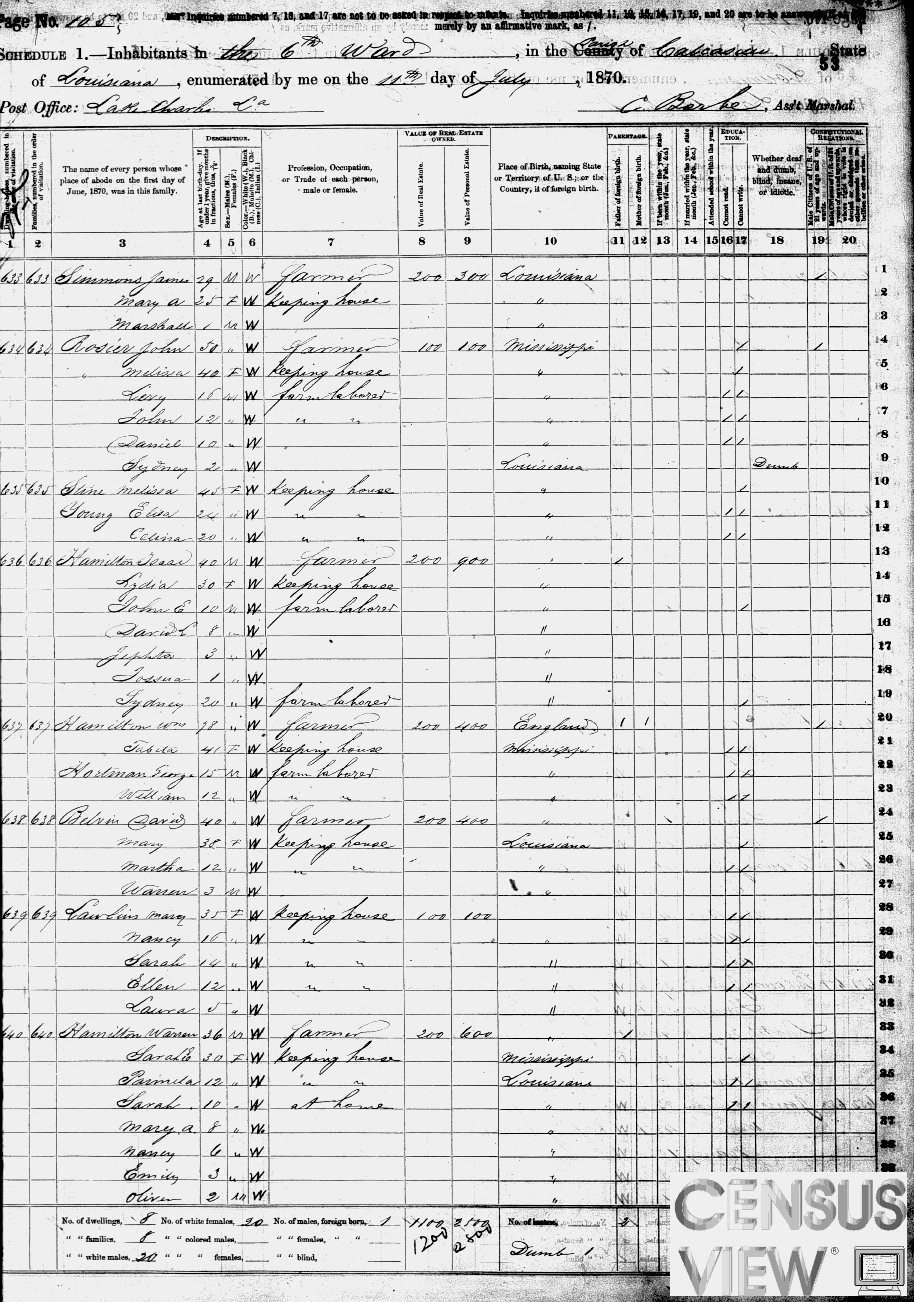 Page No. 105
Inquiries numbered 7, 16, and 17 are not to be asked in respect to infants. Inquiries numbered 11, 12, 15, 16, 17, 19, and 20 are to be answered
merely by an affirmative mark, as /.
SCHEDULE 1.—Inhabitants in the 6th Ward, in the County Parish of Calcasieu State
53
of Louisiana, enumerated by me on the 11th day of July, 1870.
Post Office: Lake Charles La C Barbe, Ass't Marshal.
DESCRIPTION. VALUE OF REAL ESTATE OWNED. PARENTAGE. EDUCATION. CONSTITUTIONAL RELATIONS.
The name of every person whose place of abode on the first day of June, 1870, was in this family.
Profession, Occupation, or Trade of each person, male or female.
Value of Real Estate. Value of Personal Estate.
Place of Birth, naming State or Territory of U. S.; or the Country, if of foreign birth.
Father of foreign birth. Mother of foreign birth.
Attended school within the year. Cannot read. Cannot write.
Whether deaf and dumb, blind, insane, or idiotic.
1 2 3 4 5 6 7 8 9 10 11 12 13 14 15 16 17 18 19 20
633 633 Simmons James 29 M W farmer 200 300 Louisiana / 1
Mary A 25 F W Keeping house " 2
Marshall 1 M W " 3
634 634 Rosier John 50 " W farmer 100 100 Mississippi / / 4
" Melissa 40 F W Keeping house " / 5
Levy 16 M W farm laborer " / / 6
John 12 " W " " " / / 7
Daniel 10 " W " / / 8
Sydney 2 " W Louisiana Dumb 9
635 635 Stine Melissa 45 F W Keeping house " / 10
Young Eliza 24 " W " " " / / 11
Celina 20 " W " " " / / 12
636 636 Hamilton Isaac 40 M W farmer 200 900 " / 13
Lydia 30 F W Keeping house " 14
John E 10 M W farm laborer " / 15
David L 8 " W " 16
Jephta 3 " W " 17
Jossua 1 " W " 18
Sydney 20 " W farm laborer " / 19
637 637 Hamilton Wm 78 " W farmer 200 400 England / / / 20
Tabita 41 F W Keeping house Mississippi / / 21
Hortman George 15 M W farm laborer " / / 22
William 12 " W " " " / / 23
638 638 Belvin David 40 " W farmer 200 400 " / 24
Mary 38 F W Keeping house Louisiana / 25
Martha 12 " W " " " / / 26
Warren 3 M W " 27
639 639 Lawlins Mary 35 F W Keeping house 100 100 / / 28
Nancy 16 " W " " " / / 29
Sarah 14 " W " " " / / 30
Ellen 12 " W " " " / / 31
Laura 5 " W " 32
640 640 Hamilton Warren 36 M W farmer 200 600 " / 33
Sarah E 30 F W Keeping house Mississippi / 34
Parmela 12 " W " " Louisiana / / 35
Sarah 10 " W at home " / / 36
Mary A 8 " W " 37
Nancy 6 " W " 38
Emily 3 " W " 39
Oliver 2 M W "
No. of dwellings, 8 No. of white females, 20 No. of males, foreign born, 1 1100 2500 No. of insane, 2
" " families, 8 " " colored males, " " females, " " 1200 2800
" " white males, 20 " " " females, " " blind, Dumb 1
CENSUS
VIEW ®